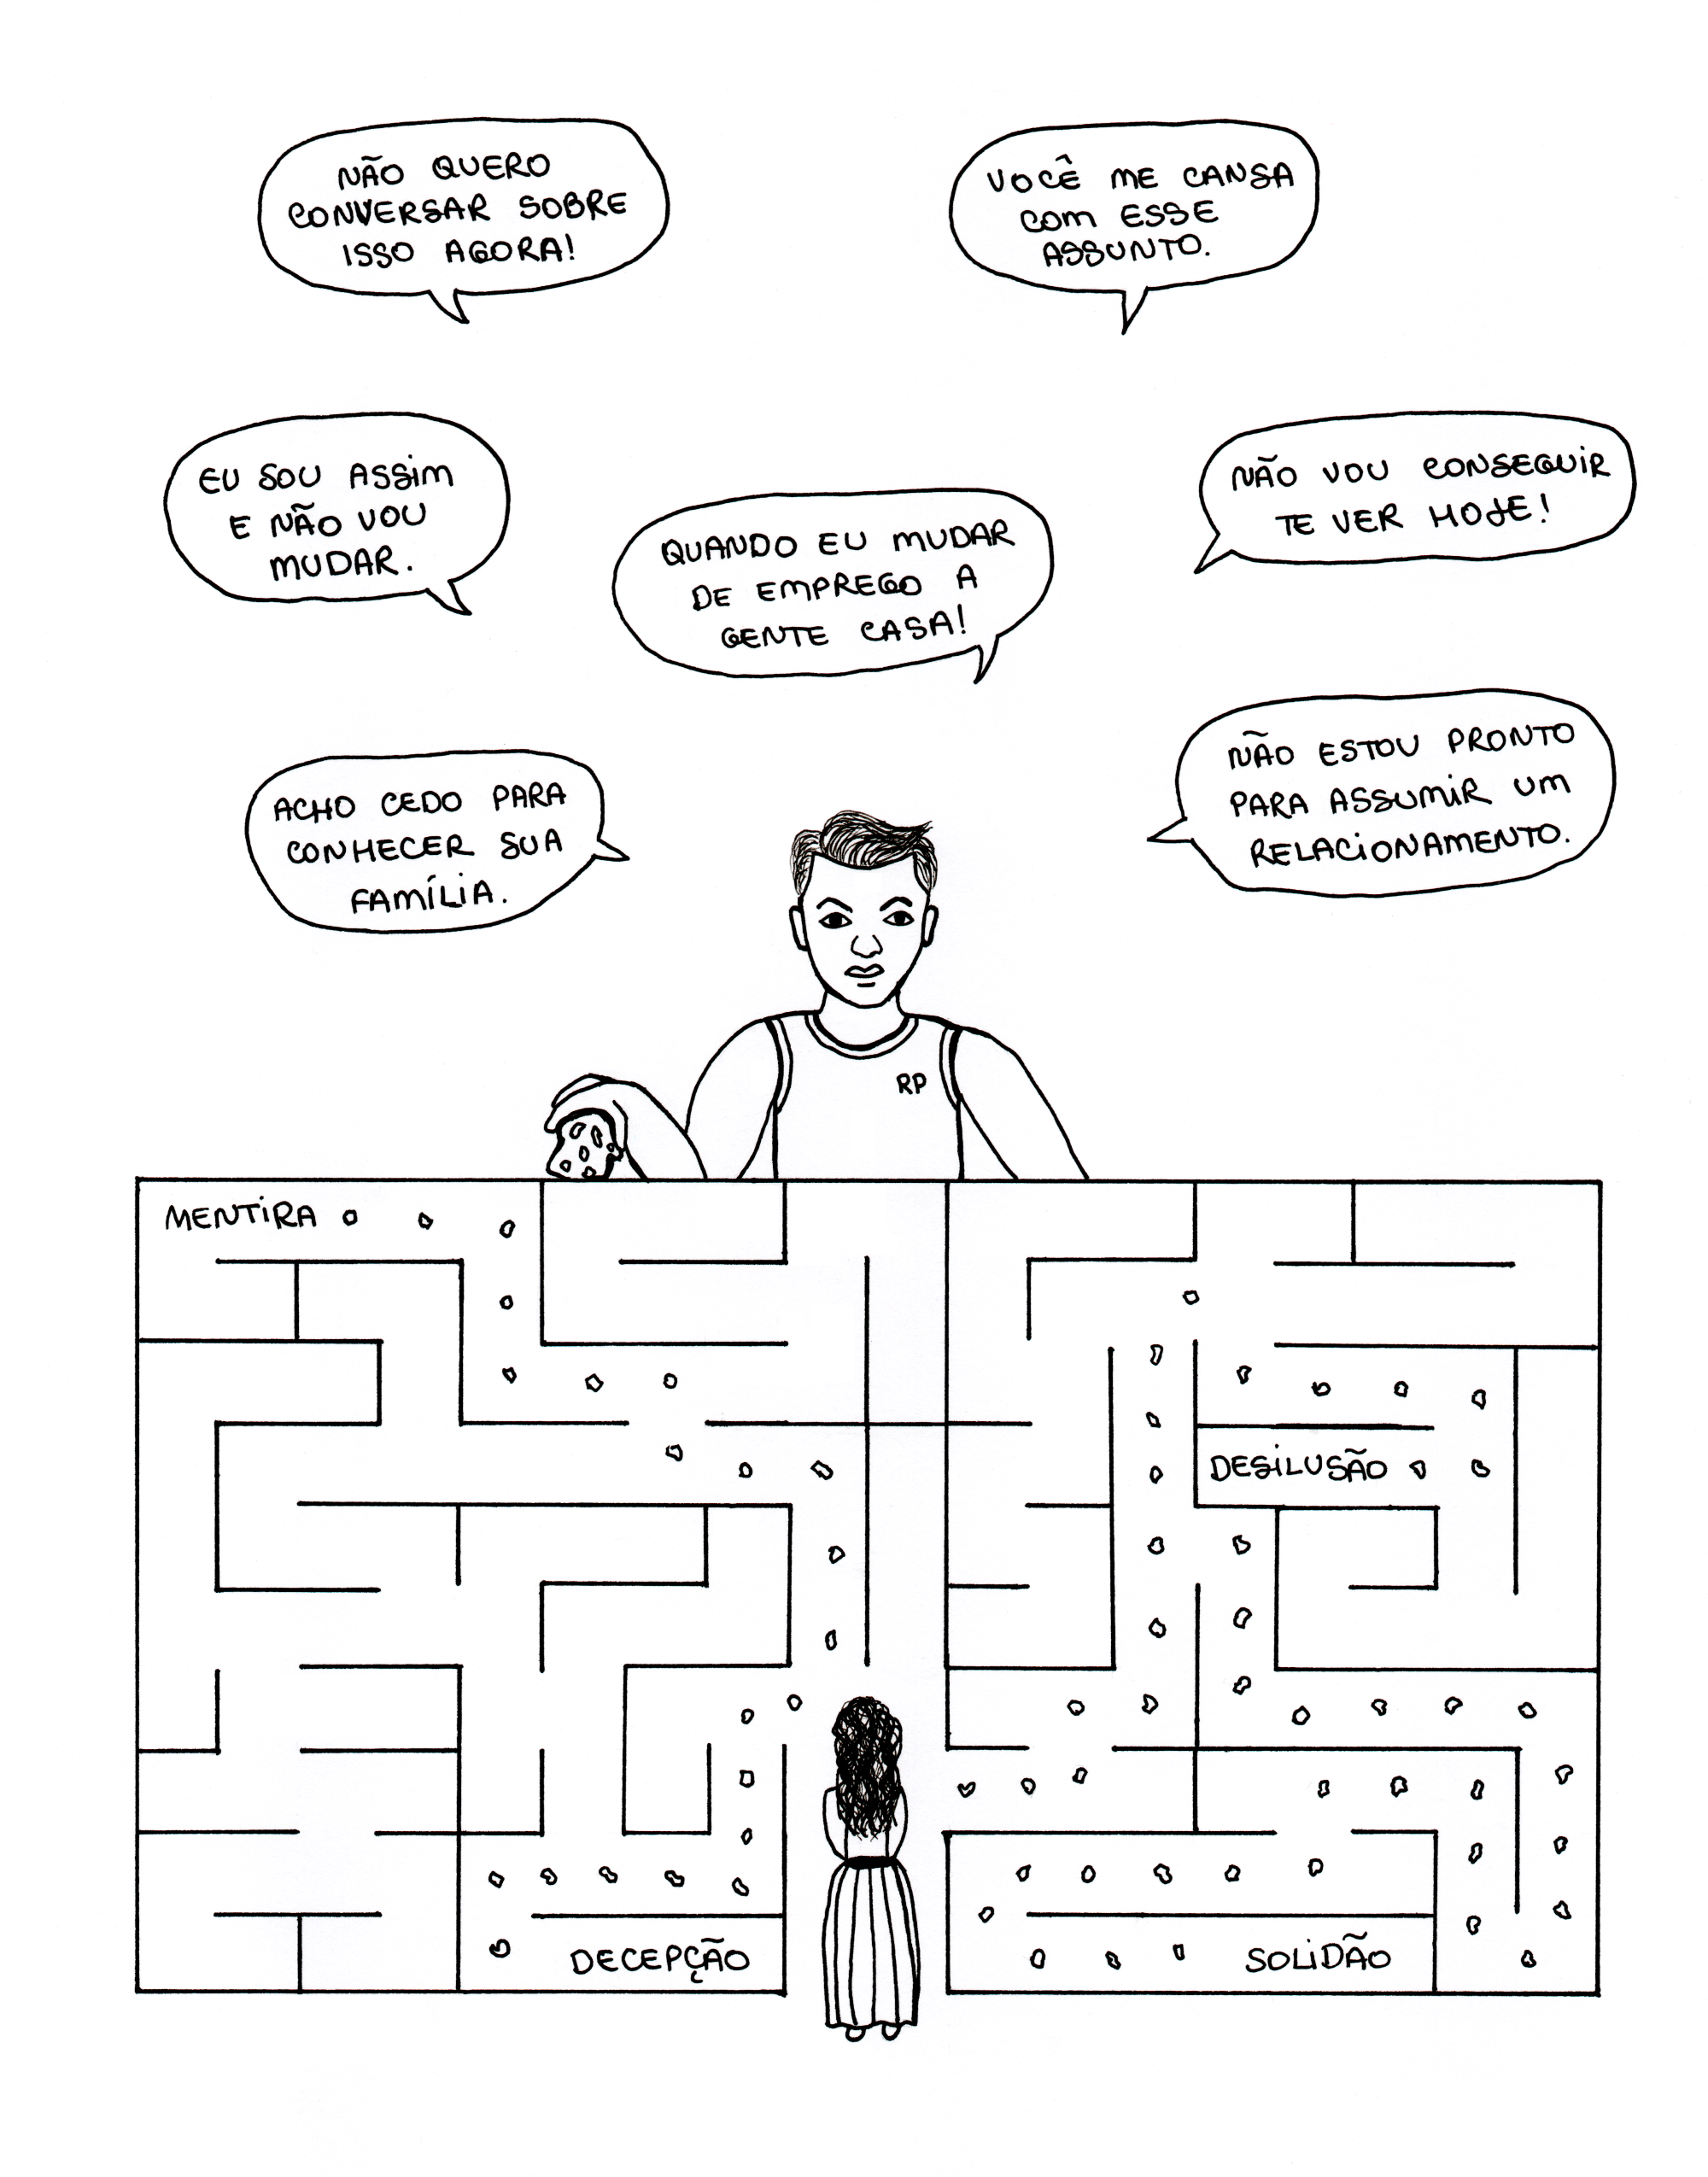 NÃO QUERO
CONVERSAR SOBRE
ISSO AGORA!
VOCÊ ME CANSA
COM ESSE
ASSUNTO.
EU SOU ASSIM
E NÃO VOU
MUDAR.
QUANDO EU MUDAR
DE EMPREGO A
GENTE CASA!
NÃO VOU CONSEGUIR
TE VER HOJE!
ACHO CEDO PARA
CONHECER SUA
FAMÍLIA.
NÃO ESTOU PRONTO
PARA ASSUMIR UM
RELACIONAMENTO.
RP
MENTIRA
DESILUSÃO
DECEPÇÃO
SOLIDÃO